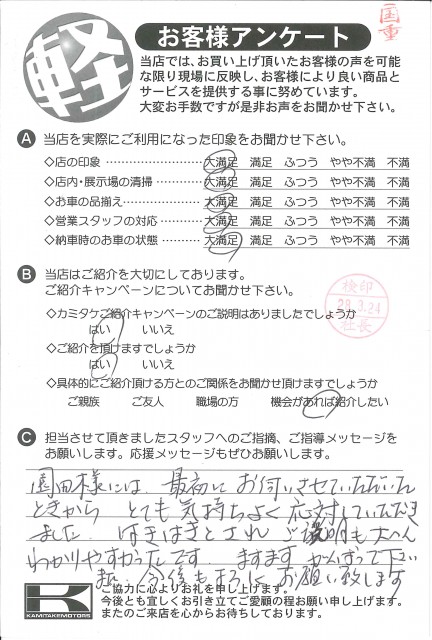 国重
軽
お客様アンケート
当店では、お買い上げ頂いたお客様の声を可能
な限り現場に反映し、お客様により良い商品と
サービスを提供する事に努めています。
大変お手数ですが是非お声をお聞かせ下さい。
A 当店を実際にご利用になった印象をお聞かせ下さい。
◇店の印象 ………………… 大満足 満足 ふつう やや不満 不満
◇店内・展示場の清掃 ……… 大満足 満足 ふつう やや不満 不満
◇お車の品揃え……………… 大満足 満足 ふつう やや不満 不満
◇営業スタッフの対応 ……… 大満足 満足 ふつう やや不満 不満
◇納車時のお車の状態 ……… 大満足 満足 ふつう やや不満 不満
B 当店はご紹介を大切にしております。
ご紹介キャンペーンについてお聞かせ下さい。
◇カミタケご紹介キャンペーンのご説明はありましたでしょうか
はい いいえ
◇ご紹介を頂けますでしょうか
はい いいえ
◇具体的にご紹介頂ける方とのご関係をお聞かせ頂けますでしょうか
ご親族 ご友人 職場の方 機会があれば紹介したい
検印
28.3.24
社長
C 担当させて頂きましたスタッフへのご指摘、ご指導メッセージを
お願いします。応援メッセージもぜひお願いします。
園田様には、最初にお伺いさせていただいた
ときから とても気持ちよく応対していただき
ました。はきはきとされ ご説明も大へん
わかりやすかったです ますます がんばって下さい
また 今後もよろしくお願い致します
K
KAMITAKEMOTORS
ご協力に心よりお礼を申し上げます。
今後とも宜しくお引き立てご愛顧の程お願い申し上げます。
またのご来店を心からお待ちしております。